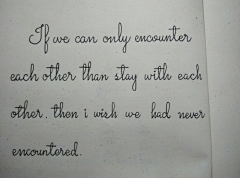 If we can only encounter
each other than stay with each
other, then i wish we had never
encountered.